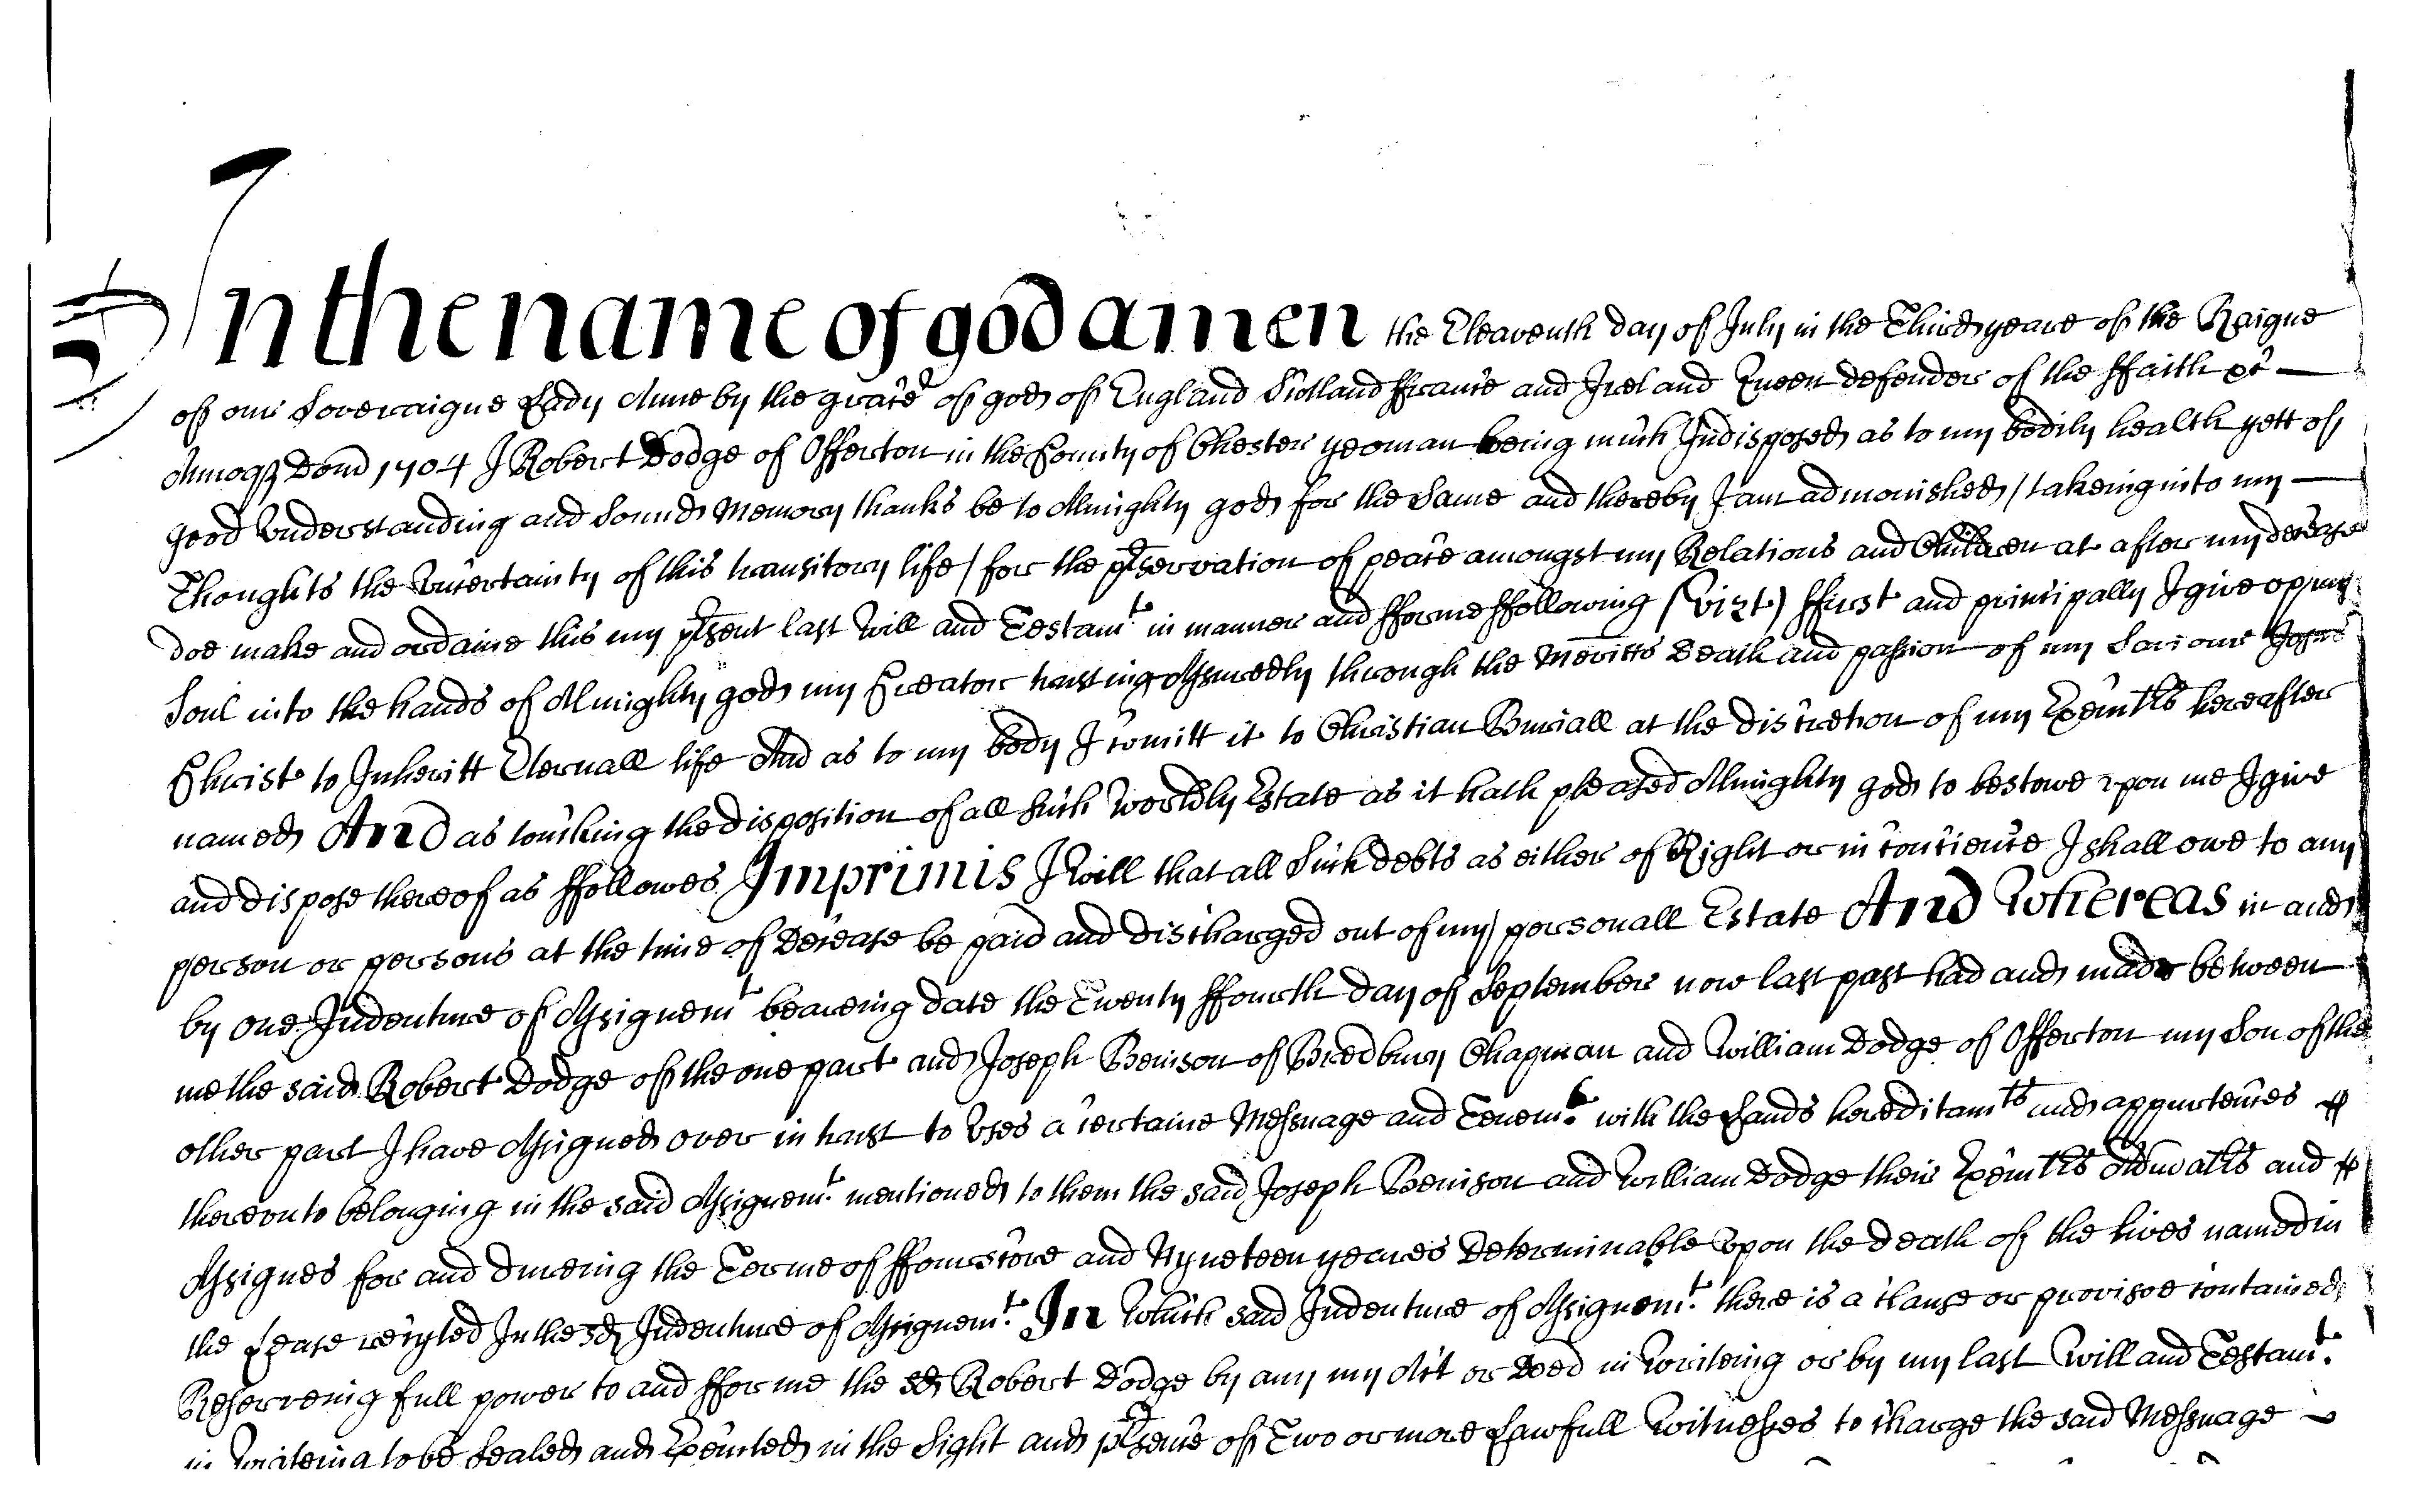 In the name of god amen the Eleaventh day of July in the Third yeare of the Raigne
of our Soveraigne Lady Anne by the grace of god of England Scotland ffrance and Ireland Queen defender of the ffaith &c
Annoqz Dom 1704 I Robert Dodge of Offerton in the County of Chester yeoman being much Indisposed as to my bodily health yett of
good Understanding and Sound Memory thanks be to Almighty god for the Same and thereby I am admonished / takeing into my
Thoughts the Uncertainty of this transitory life / for the pservation of peace amongst my Relations and Children at after my decease
doe make and ordaine this my psent last Will and Testamt in manner and fforme ffollowing (Vizt) ffirst and principally I give up my
Soul into the hands of Almighty god my Creator trusting Assuredly through the Meritts Death and passion of my Saviour Jesus
Christ to Inheritt Eternall life And as to my body I comitt it to Christian Buriall at the discretion of my Exectrs hereafter
named And as touching the disposition of all such Worldly Estate as it hath pleased Almighty god to bestowe upon me I give
and dispose thereof as ffollowes Imprimis I Will that all Such debts as either of Right or in concience I shall owe to any
person or persons at the time of Decease be paid and discharged out of my personall Estate And Whereas in and
by one Indenture of Assignemt beareing date the Twenty ffourth day of September now last past had and made between
me the said Robert Dodge of the one part and Joseph Benison of Bredbury Chapman and William Dodge of Offerton my Son of the
other part I have Assigned over in trust to Uses a certaine Messuage and Tenemt with the Lands hereditamts and appurtences
thereunto belonging in the said Assignemt mentioned to them the said Joseph Benison and William Dodge their Exectrs Admatrs and
Assignes for and dureing the Terme of ffourscore and Nyneteen yeares Determinable Upon the death of the lives named in
the Lease recyted In the sd Indenture of Assignemt In Which said Indenture of Assignemt there is a clause or provisoe contained
Reserveing full power to and ffor me the sd Robert Dodge by any my Act or Deed in Writeing or by my last Will and Testamt
in Writeing to be Sealed and Executed in the Sight and psence of Two or more Lawfull Witnesses to charge the said Messuage